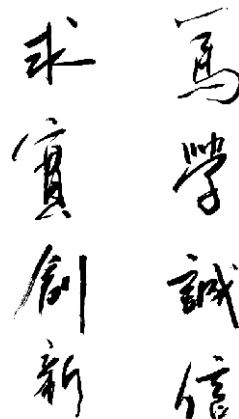 篤學誠信
求實創新